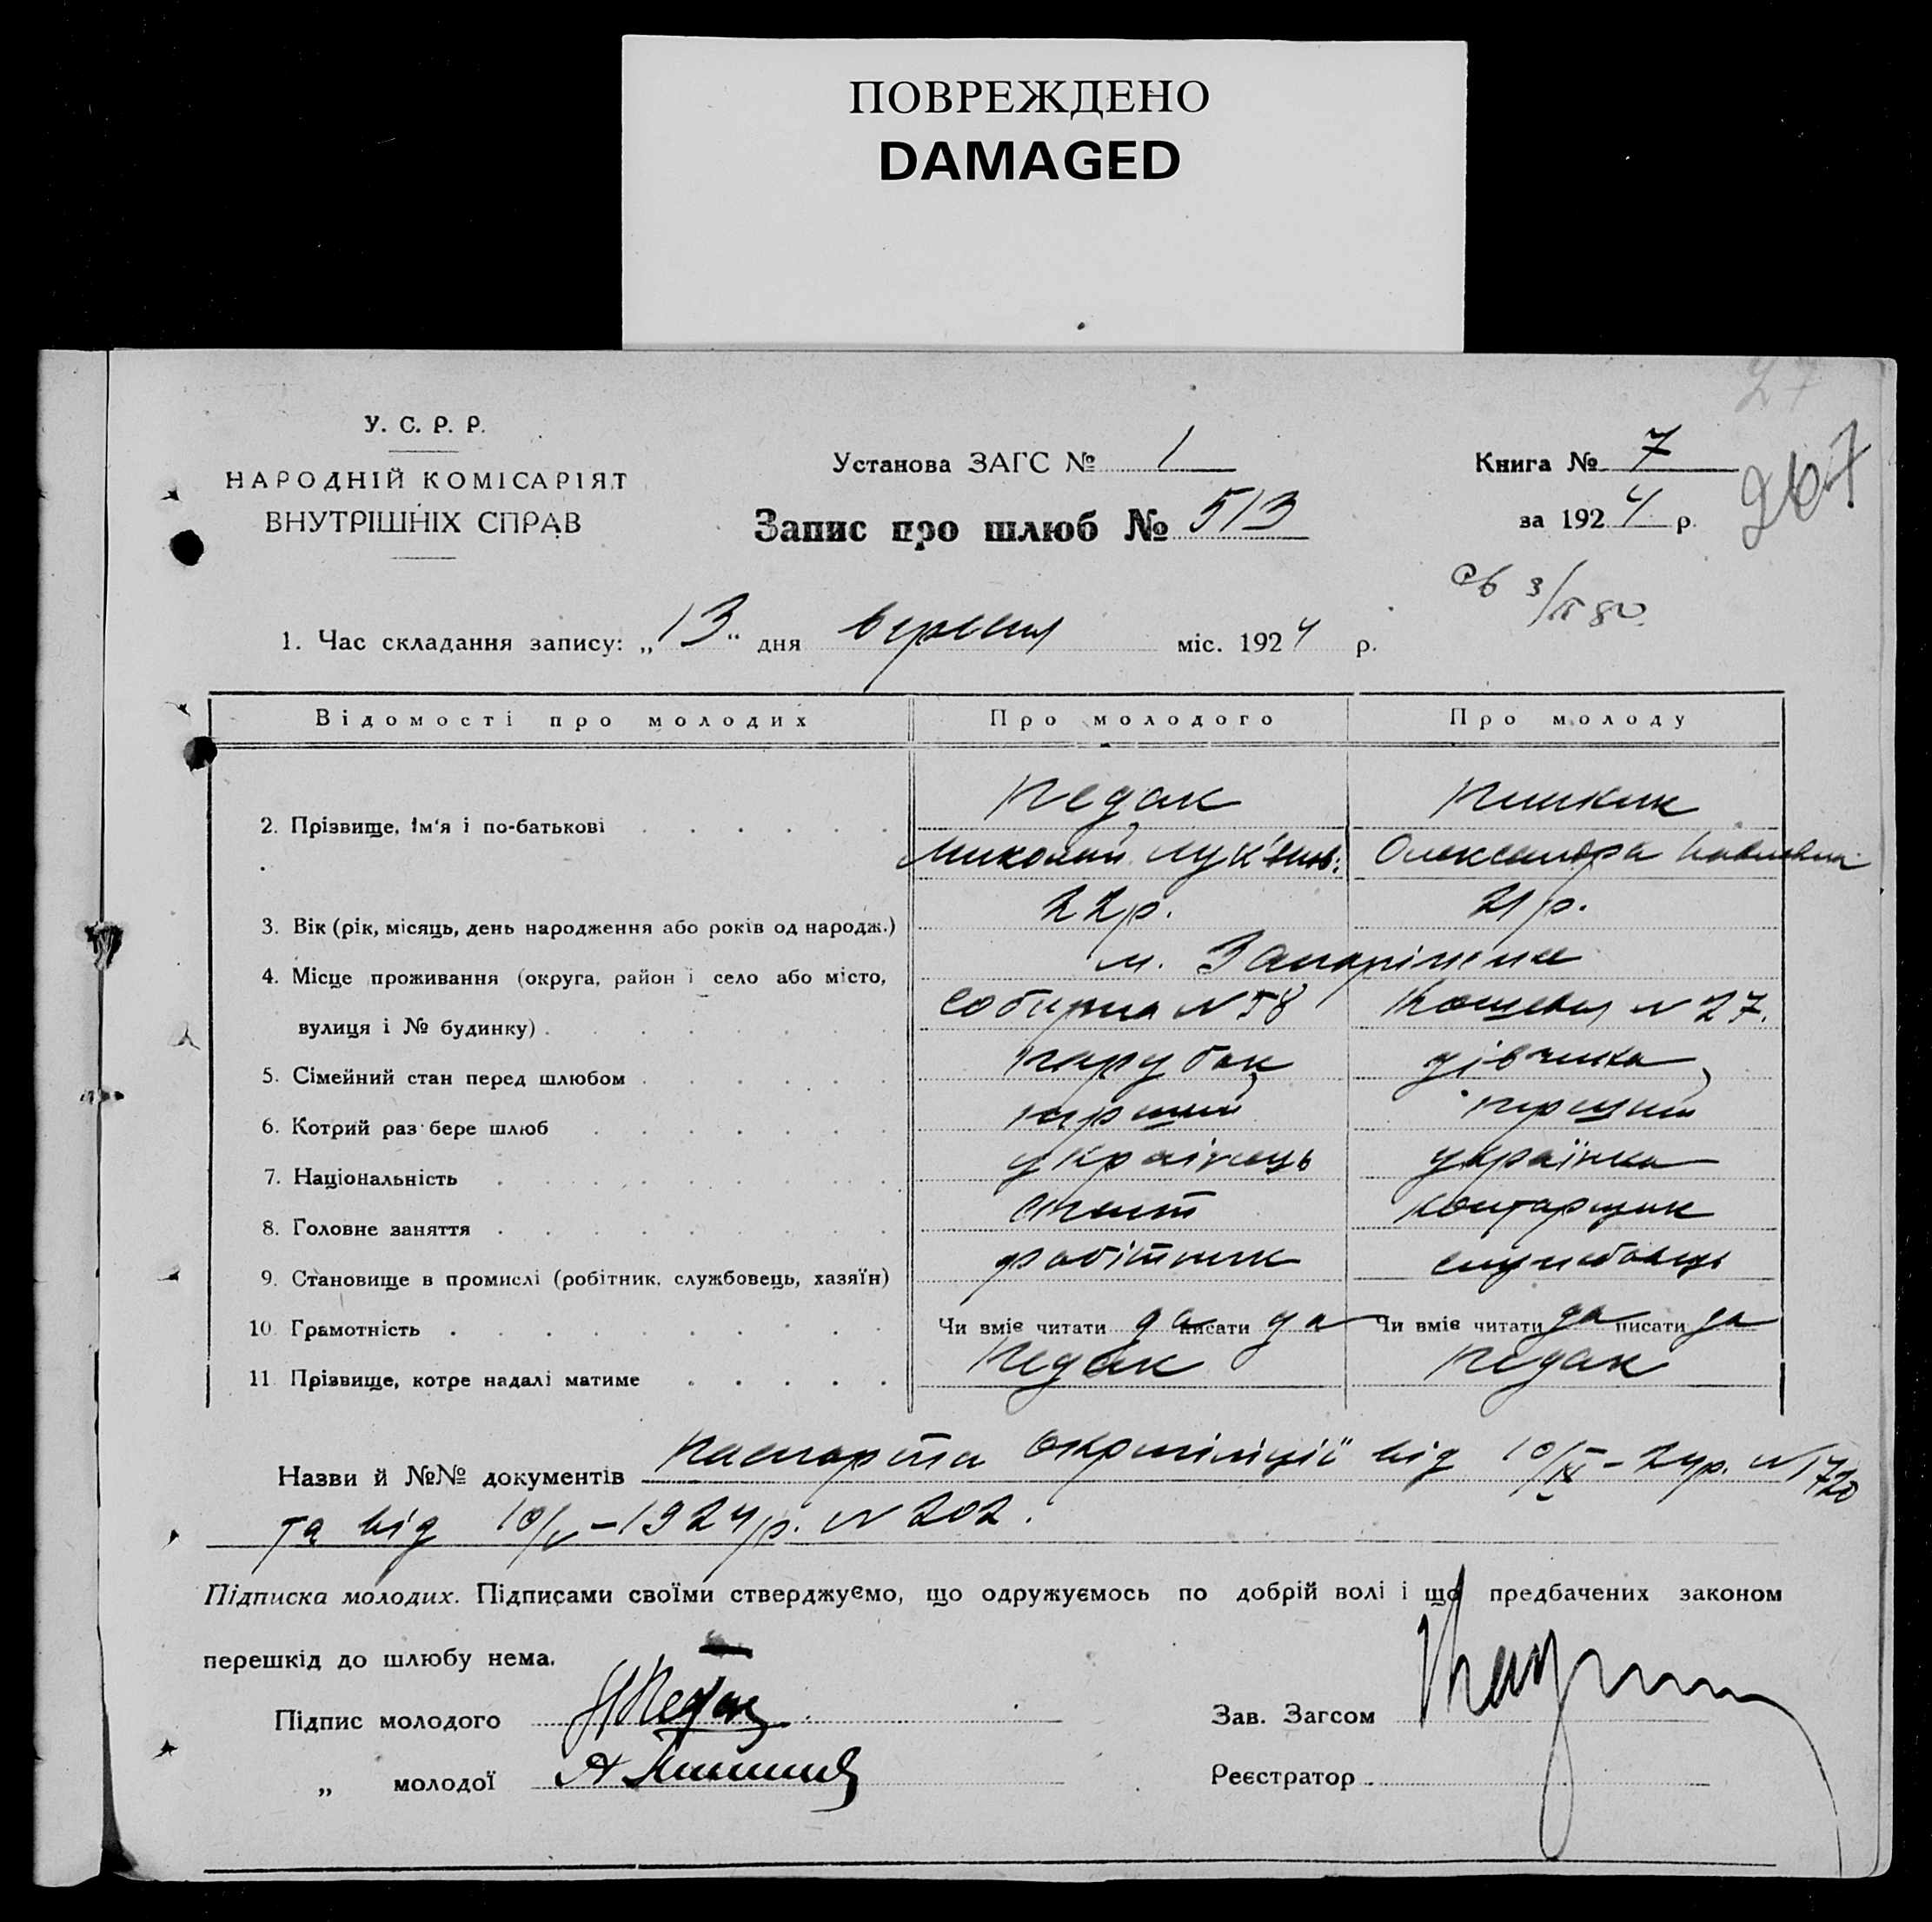 ПОВРЕЖДЕНО
DAMAGED
27
У. С. Р. Р.
НАРОДНІЙ КОМІСАРІЯТ
ВНУТРІШНІХ СПРАВ
Установа ЗАГС № 1
Запис про шлюб № 513
Книга № 7
за 1924 р.
267
1. Час складання запису: „13“ дня вересня міс. 1924 р.
Відомості про молодих Про молодого Про молоду
Педак
2. Прізвище, ім'я і по-батькові
Миколай Лук'янов. Олександра Павловна
3. Вік (рік, місяць, день народження або років од народж.) 22 р. 21 р.
4. Місце проживання (округа, район і село або місто, м. Запоріжжя
вулиця і № будинку) Соборна № 58 Кошевая № 27.
5. Сімейний стан перед шлюбом парубок дівчина
6. Котрий раз бере шлюб перший перший
7. Національність українець українка
8. Головне заняття агент конторщик
9. Становище в промислі (робітник, службовець, хазяїн) робітник службовець
10 Грамотність Чи вміє читати да писати да Чи вміє читати да писати да
11 Прізвище, котре надалі матиме Педак Педак
Назви й №№ документів паспорта Окрміліції від 10/IX – 24 р. № 1720
та від 10/V – 1924 р. № 202.
Підписка молодих. Підписами своїми стверджуємо, що одружуємось по добрій волі і що предбачених законом
перешкід до шлюбу нема.
Підпис молодого Н Педак
Зав. Загсом
„ молодої
Реєстратор